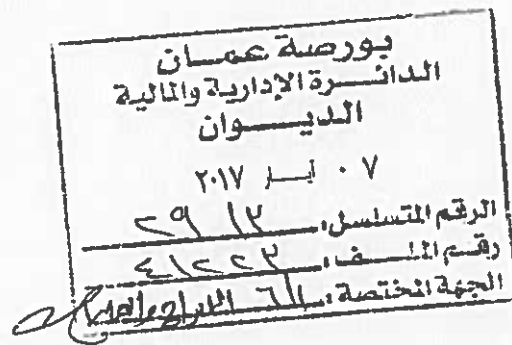 بورصة عمان
الدائرة الإدارية والمالية
الديوان
٠٧ أيار ٢٠١٧
الرقم المتسلسل: ٢٩١٢
رقم الملف: ٤١٢٢٣
الجهة المختصة: